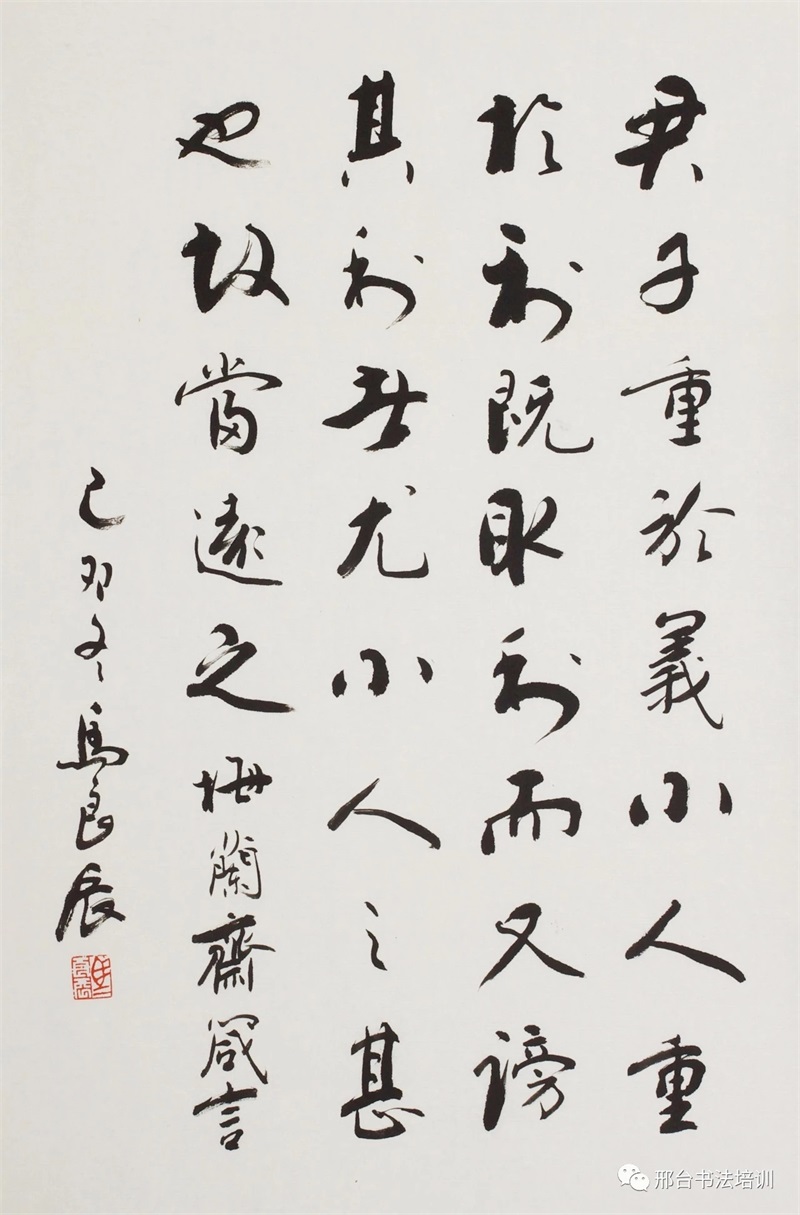 君子重於義小人重
於利既取利而又謗
其利者尤小人之甚
也故當遠之梅蘭齋箴言
己卯冬馬良辰
邢台书法培训